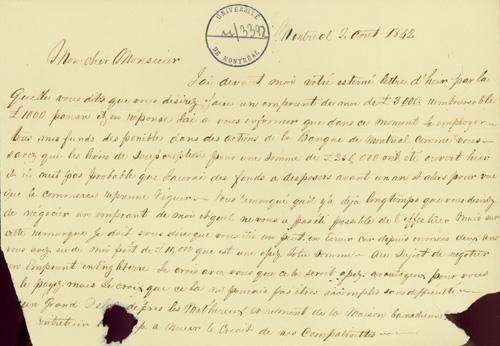 UNIVERSITÉ
11/3392
DE MONTRÉAL
Montreal 2 Aout 1842
Mon cher Monsieur
J'ai devant moi votre estimé lettre d'hier par la
Quelle vous dites que vous desirez faire un emprunt de moi de £3000 remboursable
£1000 par an et en reponse j'ai a vous informer que dans ce moment
tous mes funds disponible dans des actions de la Banque de Montreal comme vous
savez que les livres de Souscription pour une somme de £ ont été ouvert hier
et il n'est pas probable que j'aurai des fonds a desposer avant un an et alors pour vue
que le commerce reprenne Vigeur. Vous remarqué qu'il y a déja longtemps que vous desirez
de négocier un emprunt de moi et qu'il ne vous a pas été possible de l'effectuer Mais sur
cette remarque Je doit vous dire que vous etes un peut en erreur car depuis environs deux ans
vous avez eu de moi prét de £10,000 que est une assez jolie Somme. Au Sujet de negotier
un Emprunt en Engleterre Je crois avec vous que ce la serait assez avantageux pour vous
le payez mais Je crois que ce la ne pourrais pas etre accomplis sans difficulté
un Grand les Malheureux evenement de la Maison Canadienne
entretien a nuier le Credit de nos Compatriottes